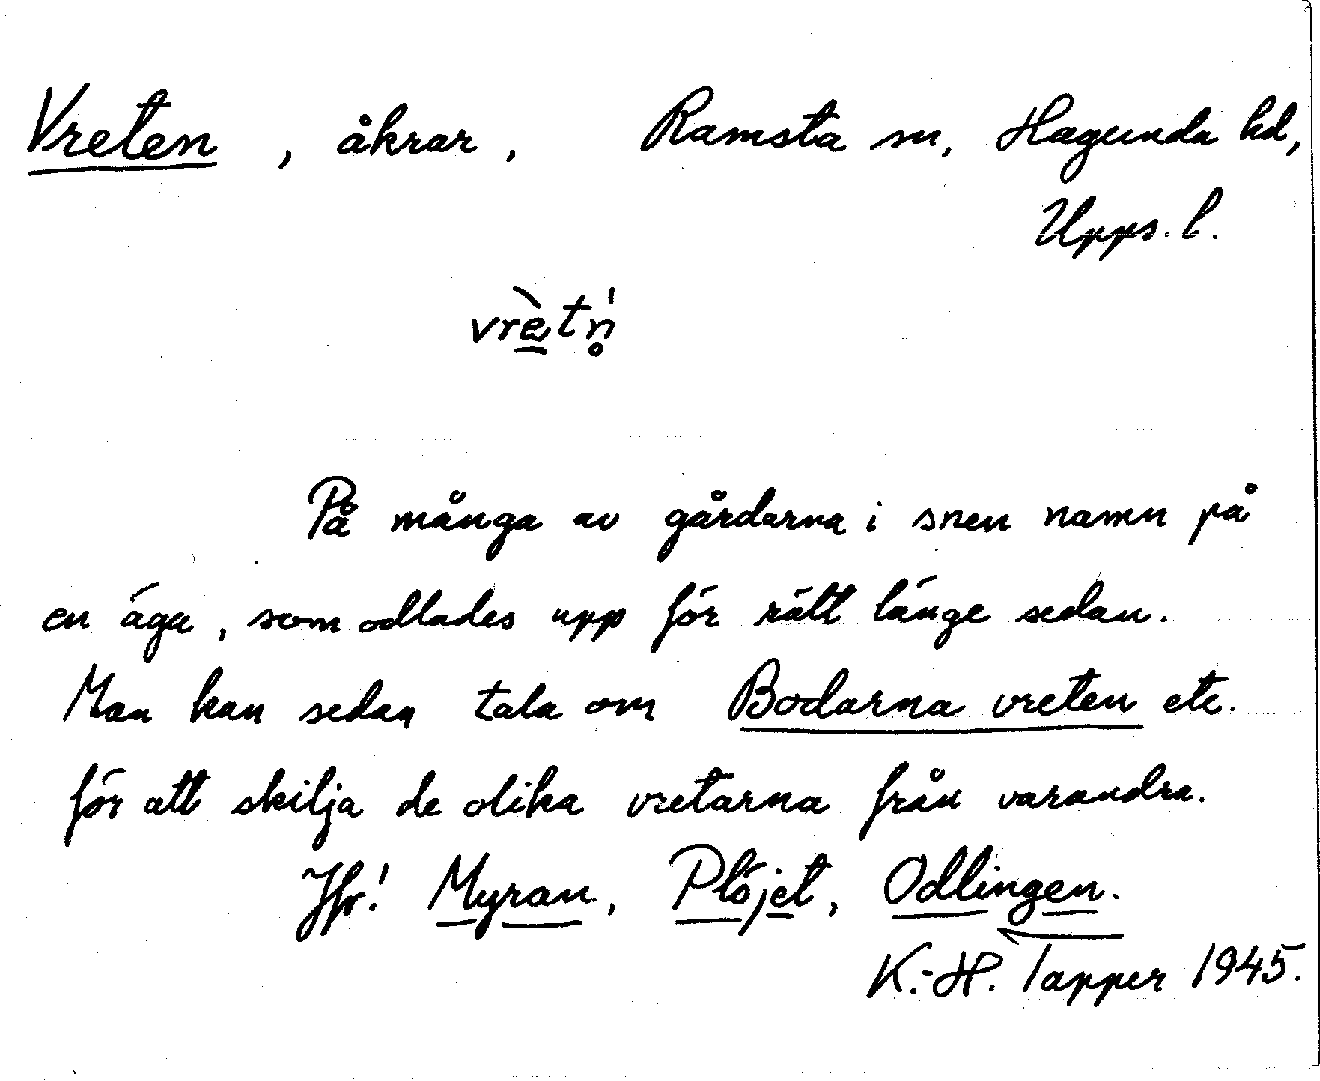 Vreten, åkrar, Ramsta sn, Hagunda hd,
Upps. l.
vrè̠tn̥'
På många av gårdarna i snen namn på
en äga, som odlades upp för rätt länge sedan.
Man kan sedan tala om Bodarna vreten etc.
för att skilja de olika vretarna från varandra.
Jfr! Myran, Plöjet, Odlingen.
K.-H. Tapper 1945.